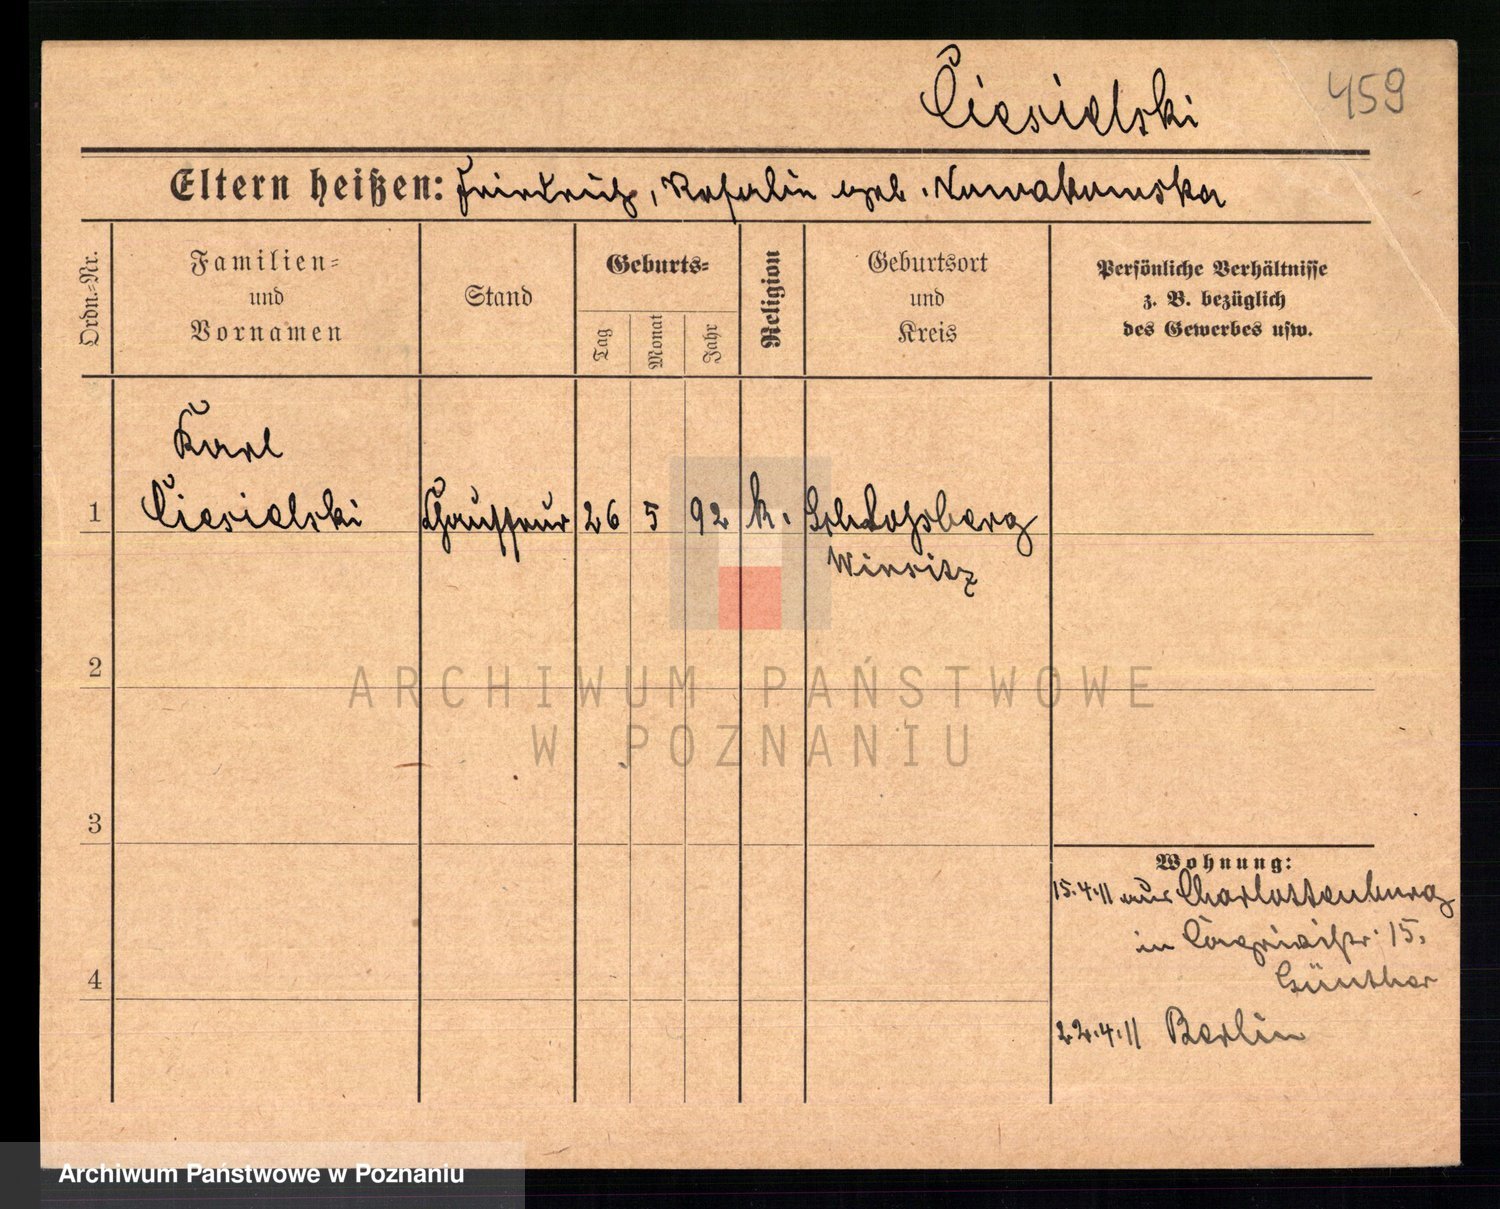 Ciesielski
459
Eltern heißen: Friedrich, Rosalie geb. Nowakowska
Ordn.-Nr.
Familien-
und
Vornamen
Stand
Geburts-
Tag
Monat
Jahr
Religion
Geburtsort
und
Kreis
Persönliche Verhältnisse
z. B. bezüglich
des Gewerbes usw.
Karl
1 Ciesielski Chauffeur 26 5 92 k.
Wirsitz
2
ARCHIWUM PAŃSTWOWE
W POZNANIU
3
Wohnung:
15.4.11 aus Charlottenburg
in 15.
Günther
4
22.4.11 Berlin
Archiwum Państwowe w Poznaniu